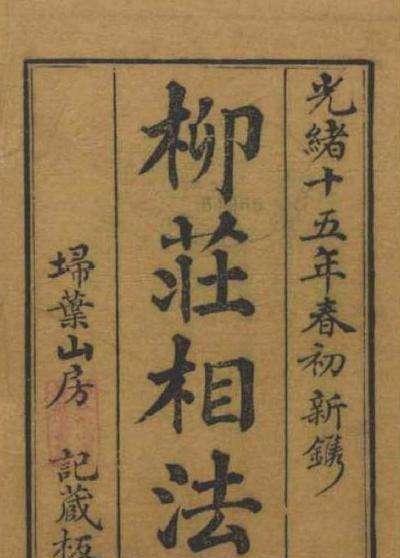 光緒十五年春初新鐫
柳莊相法
埽葉山房記藏板